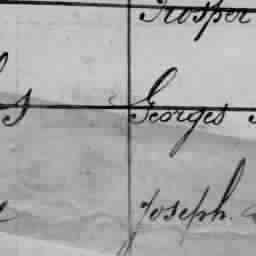 Prosper
Georges
Joseph.